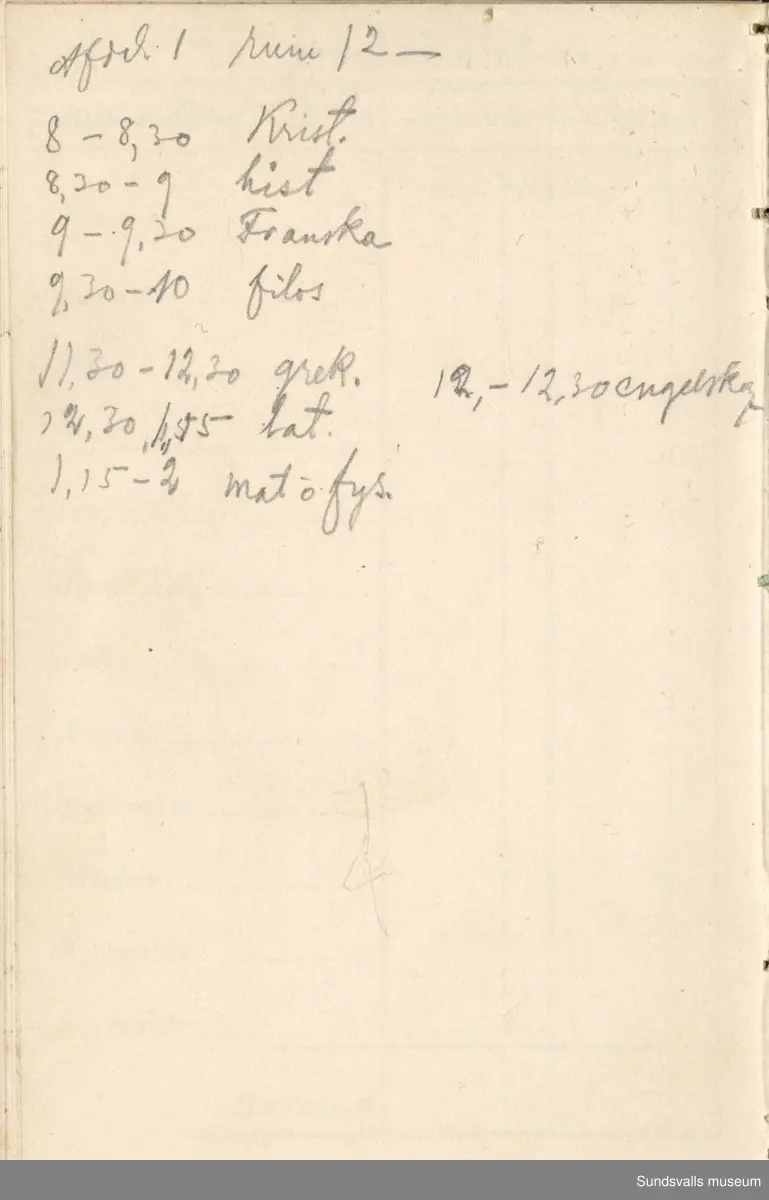 Afdel. 1 rum 12 —
8 – 8,30 Krist.
8,30 – 9 hist
9 – 9,30 Franska
9,30 – 10 filos
11,30 – 12,30 grek. 12, – 12,30 engelska
12,30, 1,15 lat.
1,15 – 2 mat o. fys.
Sundsvalls museum